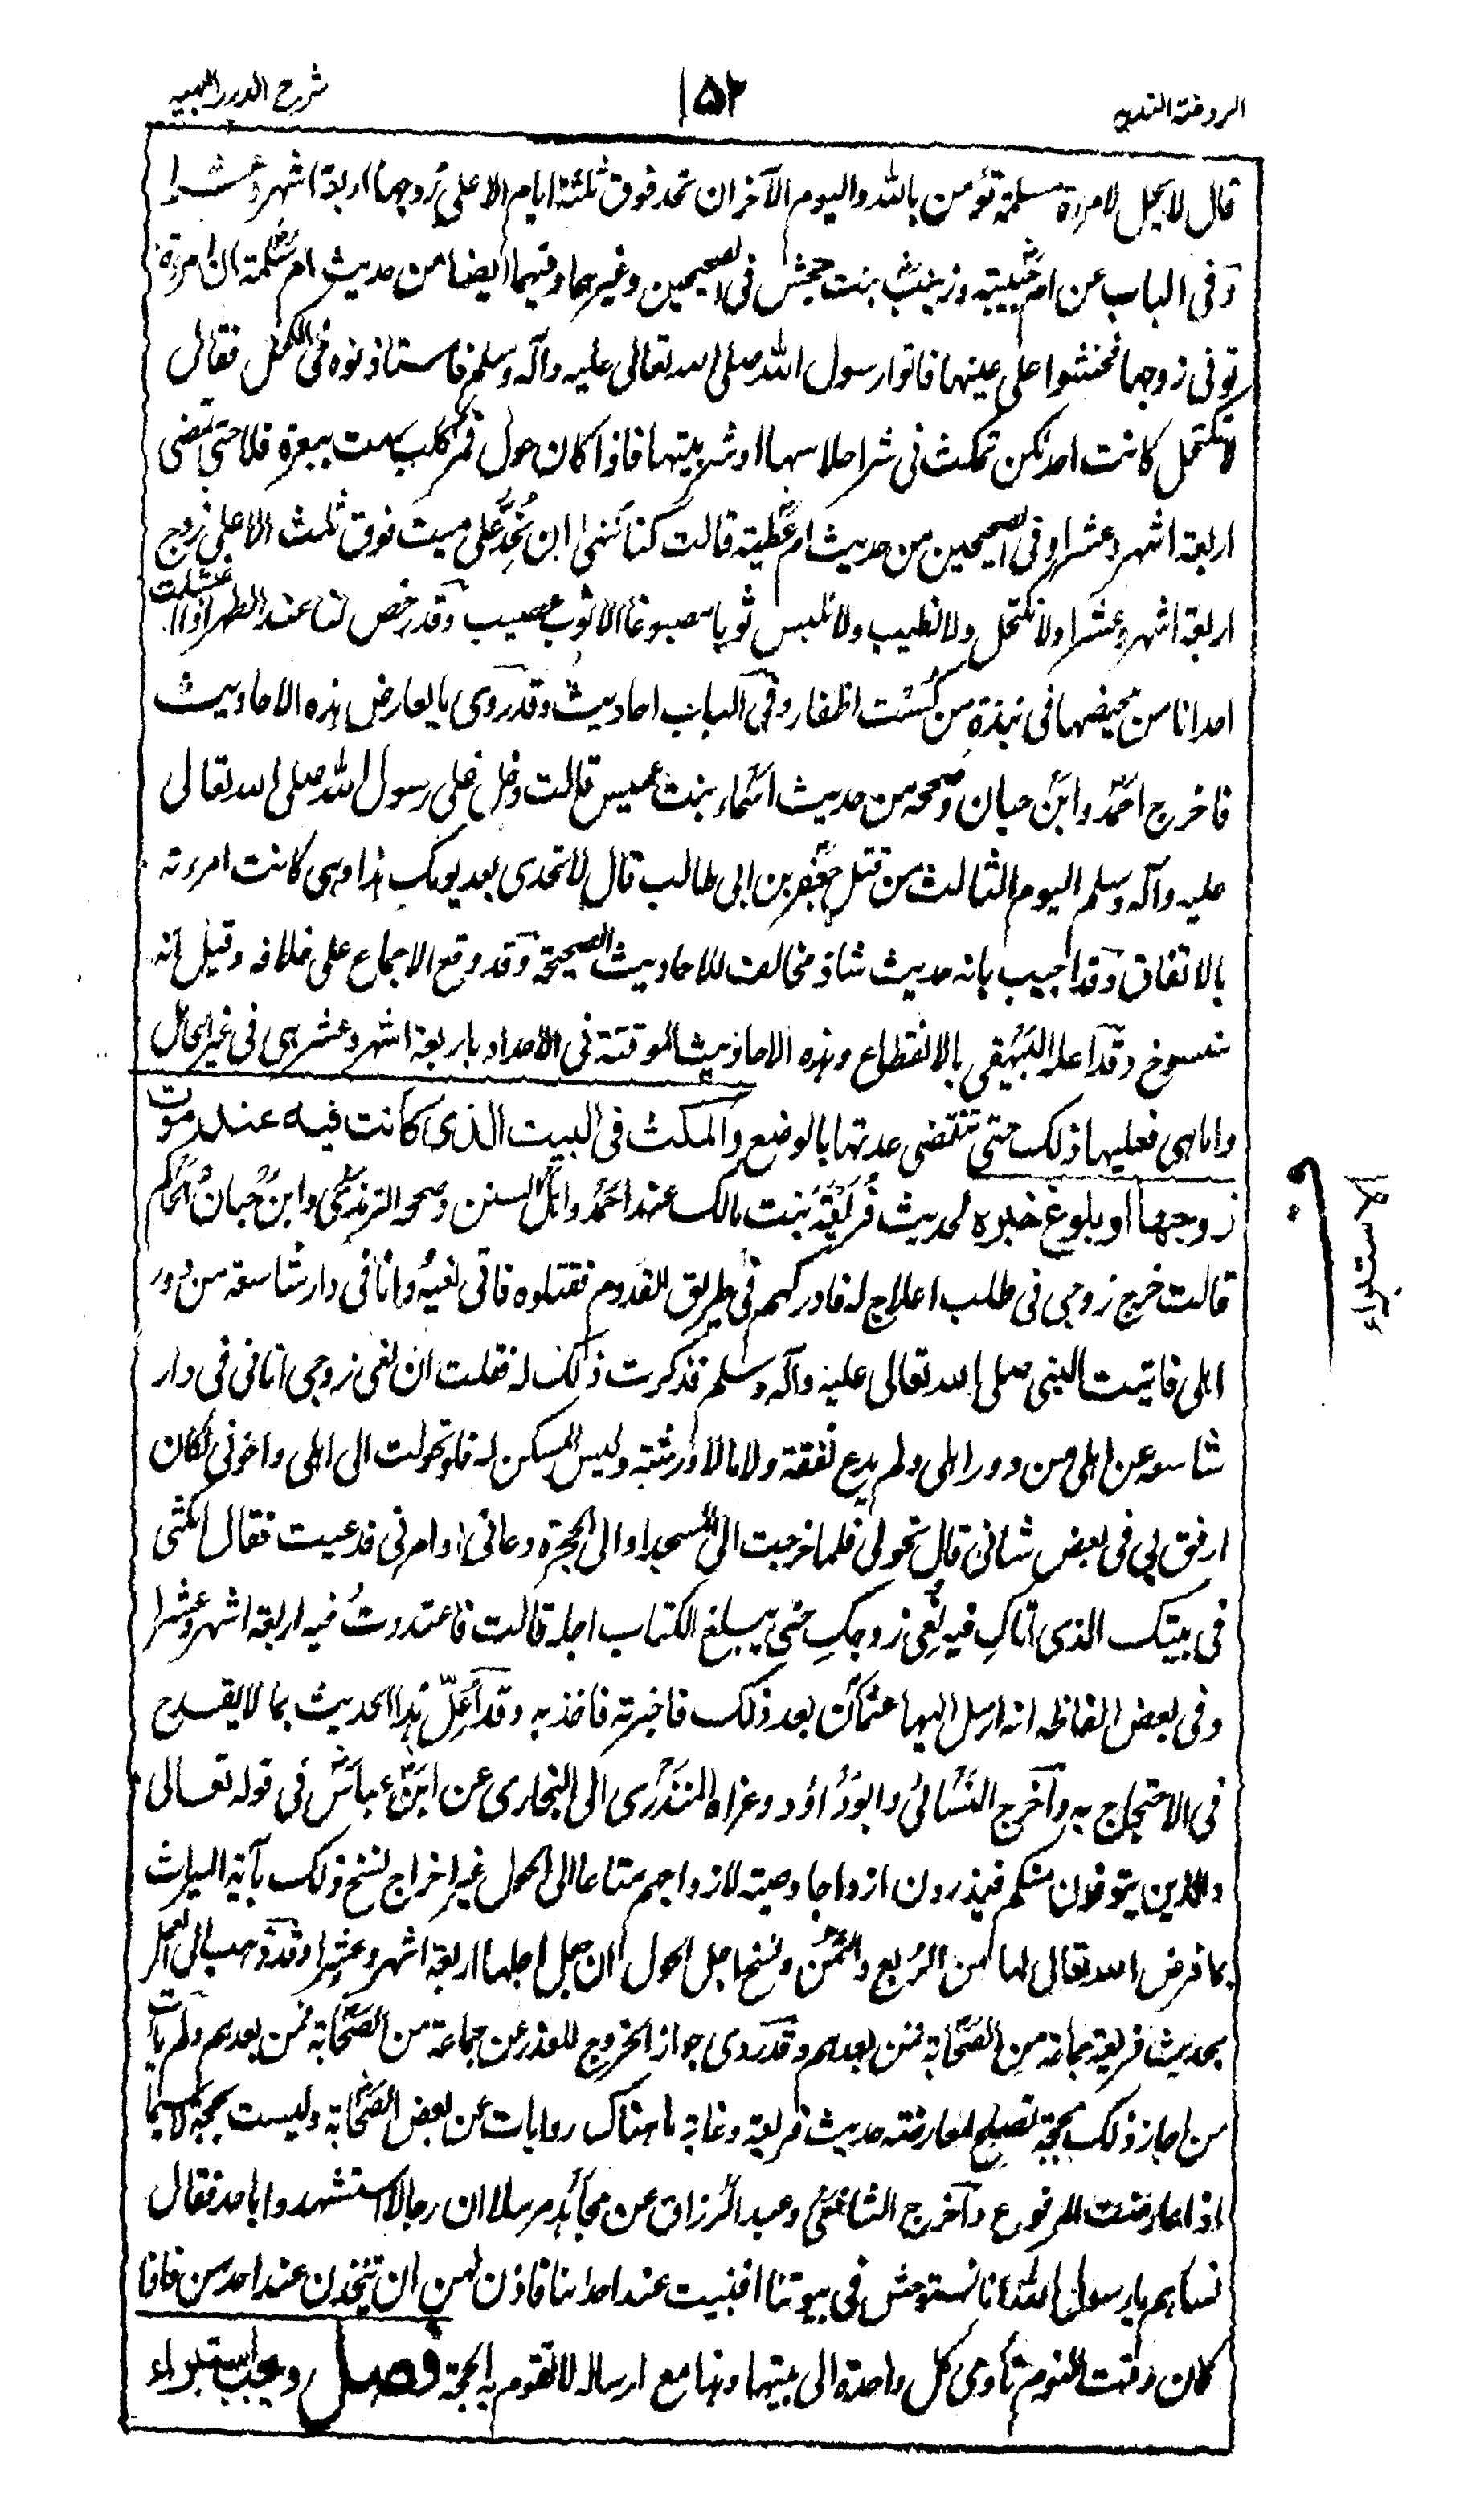 الروضة الندية
١٥٢
شرح الدرر البهية
قال لا يحل لامرءة مسلمة تؤمن بالله واليوم الآخر ان تحد فوق ثلثة ايام الا على زوجها اربعة اشهر وعشرا
وفى الباب عن ام حبيبة وزينب بنت جحش فى الصحيحين وغيرهما وفيهما ايضا من حديث ام سلمة ان امرءة
توفى زوجها فخشوا على عينها فاتوا رسول الله صلى الله تعالى عليه وآله وسلم فاستاذنوه فى الكحل فقال
لا تكتحل كانت احدٰكن تمكث فى شر احلاسها او شر بيتها فاذا كان حول فمر كلب رمت ببعرة فلا حتى تمضى
اربعة اشهر وعشرا وفى الصحيحين من حديث ام عطية قالت كنا ننهى ان نُحِدَّ على ميت فوق ثلث الا على زوج
اربعة اشهر وعشرا ولا نكتحل ولا نطيب ولا نلبس ثوبا مصبوغا الا ثوب عصب وقد رخص لنا عند الطهر اذا اغتسلت
احدانا من محيضها فى نبذةٍ من كُسْت اظفار وفى الباب احاديث وقد روى ما يعارض هذه الاحاديث
فاخرج احمد وابن حبان وصححه من حديث اسماء بنت عميس قالت دخل على رسول الله صلى الله تعالى
عليه وآله وسلم اليوم الثالث من قتل جعفر بن ابى طالب قال لا تحدى بعد يومكِ هذا وهى كانت امرءته
بالاتفاق وقد اجيب بانه حديث شاذ مخالف للاحاديث الصحيحة وقد وقع الاجماع على خلافه وقيل انه
منسوخ وقد اعله البيهقى بالانقطاع وهذه الاحاديث الموقتة فى الاحداد باربعة اشهر وعشر هى فى غير الحامل
واما هى فعليها ذلك حتى تنقضى عدتها بالوضع والمكث فى البيت الذى كانت فيه عند موت
زوجها او بلوغ خبره لحديث فُرَيْعَة بنت مالك عند احمد واهل السنن وصححه الترمذى وابن حبان والحاكم
قالت خرج زوجى فى طلب اعلاج له فادركهم فى طريق القدوم فقتلوه فاتى نعيه وانا فى دار شاسعة من دور
اهلى فاتيت النبى صلى الله تعالى عليه وآله وسلم فذكرت ذلك له فقلت ان نعى زوجى اتانى فى دار
شاسعة عن اهلى من دور اهلى ولم يدع نفقة ولا مالا ورثته وليس المسكن له فلو تحولت الى اهلى واخوتى لكان
ارفق بى فى بعض شانى قال تحولى فلما خرجت الى المسجد او الى الحجرة دعانى او امر بى فدعيت فقال امكثى
فى بيتك الذى اتاكِ فيه نعى زوجكِ حتى يبلغ الكتاب اجله قالت فاعتددتُ فيه اربعة اشهر وعشرا
وفى بعض الفاظه انه ارسل اليها عثمان بعد ذلك فاخبرته فاخذ به وقد اُعِلّ هذا الحديث بما لا يقدح
فى الاحتجاج به واخرج النسائى وابو داؤد وعزاه المنذرى الى البخارى عن ابن عباس فى قوله تعالى
والذين يتوفون منكم فيذرون ازواجا وصية لازواجهم متاعا الى الحول غير اخراج نسخ ذلك بآية الميراث
بما فرض الله تعالى لها من الربع والثمن ونسخ اجل الحول ان جعل اجلها اربعة اشهر وعشرا وقد ذهب الى العمل
بحديث فريعة جماعة من الصحابة فمن بعدهم وقد روى جواز الخروج للعذر عن جماعة من الصحابة فمن بعدهم ولم يأت
من اجاز ذلك بحجة تصلح لمعارضة حديث فريعة وغاية ما هناك روايات عن بعض الصحابة وليست بحجة لا سيما
اذا عارضت المرفوع واخرج الشافعى وعبد الرزاق عن مجاهد مرسلا ان رجالا استشهدوا باحد فقال
نساؤهم يا رسول الله انا نستوحش فى بيوتنا افنبيت عند احدانا فاذن لهن ان يتحدثن عند احدٰهن فاذا
كان وقت النوم تأوى كل واحدة الى بيتها وهذا مع ارساله لا تقوم به الحجة فصل ويجب استبراء
الاستبراء